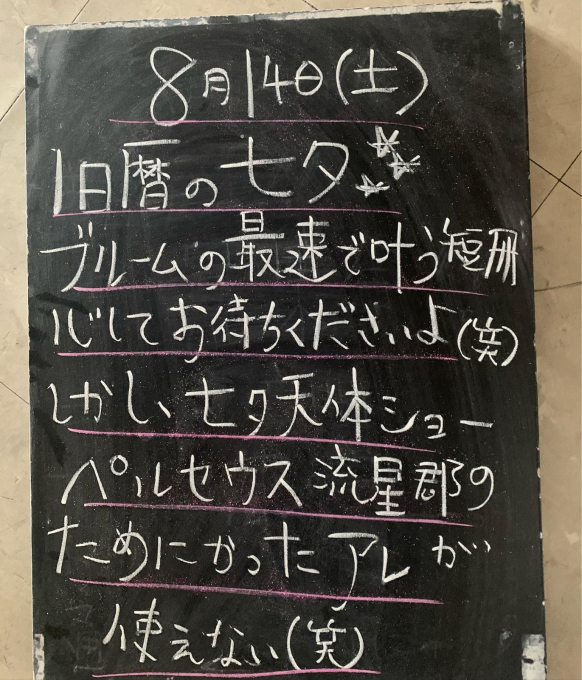 8月14日(土)
旧暦の七夕
ブルームの最速で叶う短冊
心してお待ちくださいよ(笑)
しかし、七夕天体ショー
ペルセウス流星郡の
ためにかったアレが
使えない(笑)